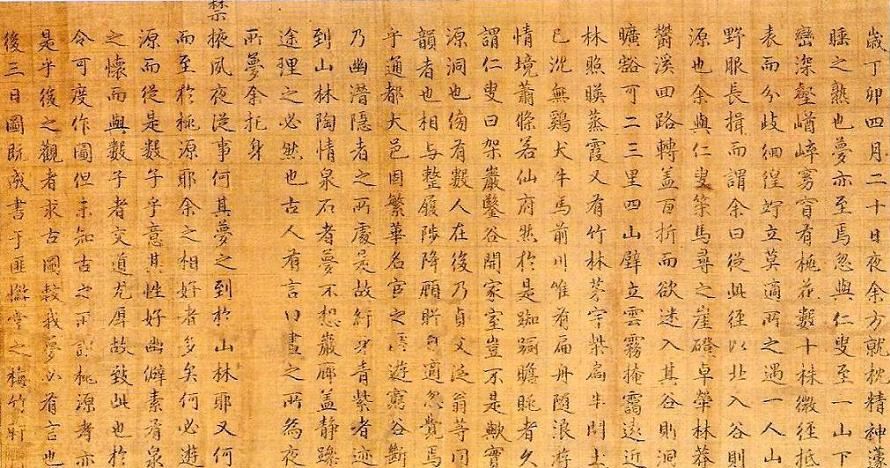 歲丁卯四月二十日夜余方就枕精神蘧
睡之熟也夢亦至焉忽與仁叟至一山下
巒深壑崷崒窈窅有桃花數十株微徑抵
表而分歧徊徨竚立莫適所之遇一人山
野服長揖而謂余曰從此徑以北入谷則
源也余與仁叟策馬尋之崖磴卓犖林莽
鬱溪回路轉盖百折而欲迷入其谷則洞
曠豁可二三里四山壁立雲霧掩靄遠近
林照暎蒸霞又有竹林茅宇柴扃半開土
已沈無鷄犬牛馬前川唯有扁舟隨浪游
情境蕭條若仙府然於是踟躕瞻眺者久
謂仁叟曰架巖鑿谷開家室豈不是歟實
源洞也傍有數人在後乃貞父泛翁等同
韻者也相与整履陟降顧眄自適忽覺焉
乎通都大邑固繁華名宦之所遊窮谷斷
乃幽潛隱者之所處是故紆身青紫者迹
到山林陶情泉石者夢不想巖廊盖靜躁
途理之必然也古人有言曰晝之所為夜
所夢余托身
禁掖夙夜從事何其夢之到於山林耶又何
而至於桃源耶余之相好者多矣何必遊
源而從是數子乎意其性好幽僻素有泉
之懷而與數子者交道尤厚故致此也於
令可度作圖但未知古之所謂桃源者亦
是乎後之觀者求古圖較我夢必有言也
後三日圖既成書于匪懈堂之梅竹軒